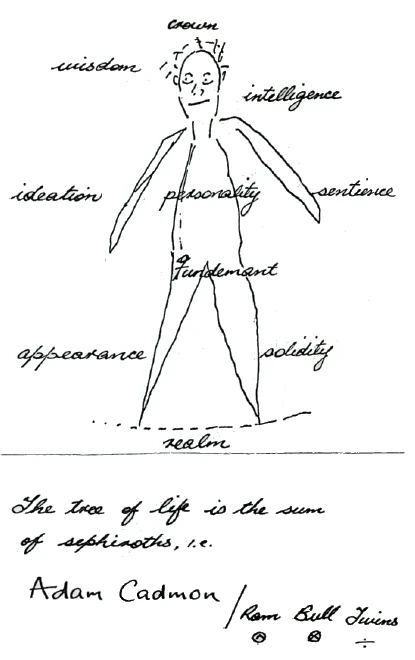 crown
wisdom
intelligence
ideation personality sentience
fundemant
appearance solidity
realm
The tree of life is the sum
of sephiroths, i.e.
Adam Cadmon / Ram Bull Twins